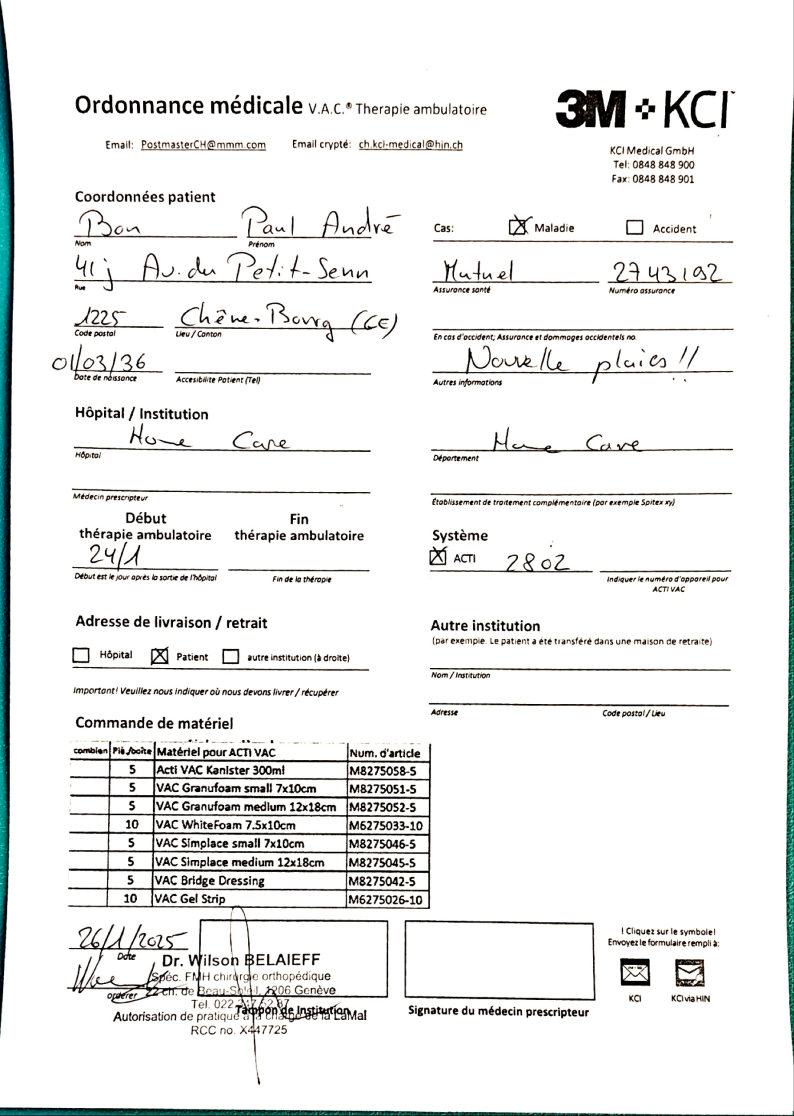 Ordonnance médicale V.A.C.® Therapie ambulatoire
3M KCI
Email: PostmasterCH@mmm.com Email crypté: ch.kci-medical@hin.ch
KCI Medical GmbH
Tel: 0848 848 900
Fax: 0848 848 901
Coordonnées patient
Bon Paul André
Nom Prénom
Cas: Maladie Accident
41j Av. du Petit-Senn
Rue
Mutuel 2743192
Assurance santé Numéro assurance
1225 Chêne-Bourg (GE)
Code postal Lieu / Canton
En cas d'accident; Assurance et dommages accidentels no.
01/03/36
Date de naissance Accesibilite Patient (Tel)
Nouvelle plaies !!
Autres informations
Hôpital / Institution
Home Care
Hôpital
Home Care
Département
Médecin prescripteur
Établissement de traitement complémentaire (par exemple Spitex xy)
Début Fin
thérapie ambulatoire thérapie ambulatoire
24/1
Début est le jour après la sortie de l'hôpital Fin de la thérapie
Système
ACTI 2802
Indiquer le numéro d'appareil pour
ACTI VAC
Adresse de livraison / retrait
Hôpital Patient autre institution (à droite)
Important! Veuillez nous indiquer où nous devons livrer / récupérer
Autre institution
(par exemple. Le patient a été transféré dans une maison de retraite)
Nom / Institution
Adresse Code postal / Lieu
Commande de matériel
combien Piè./boîte Matériel pour ACTI VAC Num. d'article
5 Acti VAC Kanister 300ml M8275058-5
5 VAC Granufoam small 7x10cm M8275051-5
5 VAC Granufoam medium 12x18cm M8275052-5
10 VAC WhiteFoam 7.5x10cm M6275033-10
5 VAC Simplace small 7x10cm M8275046-5
5 VAC Simplace medium 12x18cm M8275045-5
5 VAC Bridge Dressing M8275042-5
10 VAC Gel Strip M6275026-10
26/1/2025
Date
opérer
Dr. Wilson BELAIEFF
Spéc. FMH chirurgie orthopédique
22 ch. de Beau-Soleil, 1206 Genève
Tel. 022
Tampon de Institution
Autorisation de pratique à la charge de la LaMal
RCC no. X447725
Signature du médecin prescripteur
! Cliquez sur le symbole!
Envoyez le formulaire rempli à:
KCI KCI via HIN